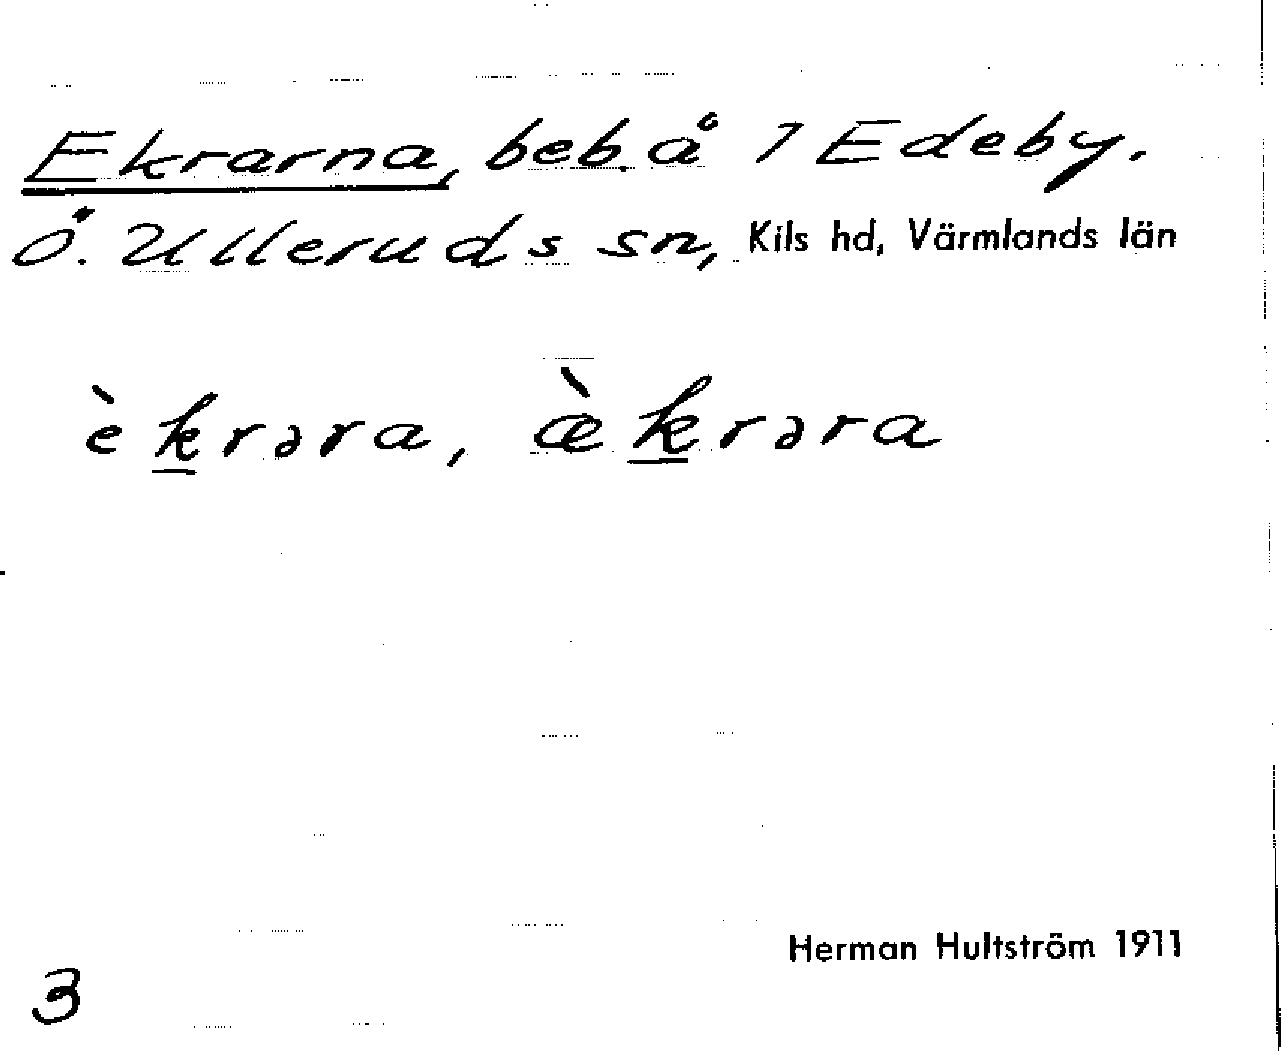 Ekrarna, beb. å 1 Edeby.
Ö. Ulleruds sn, Kils hd, Värmlands län
è k̲rəra, æ̀ k̲rəra
Herman Hultström 1911
3